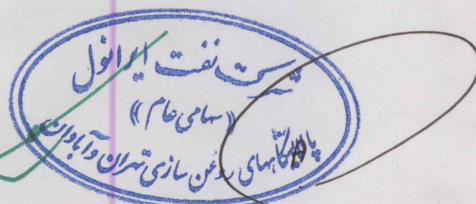 شرکت نفت ایرانول
«سهامی عام»
پالایشگاههای روغن سازی تهران و آبادان